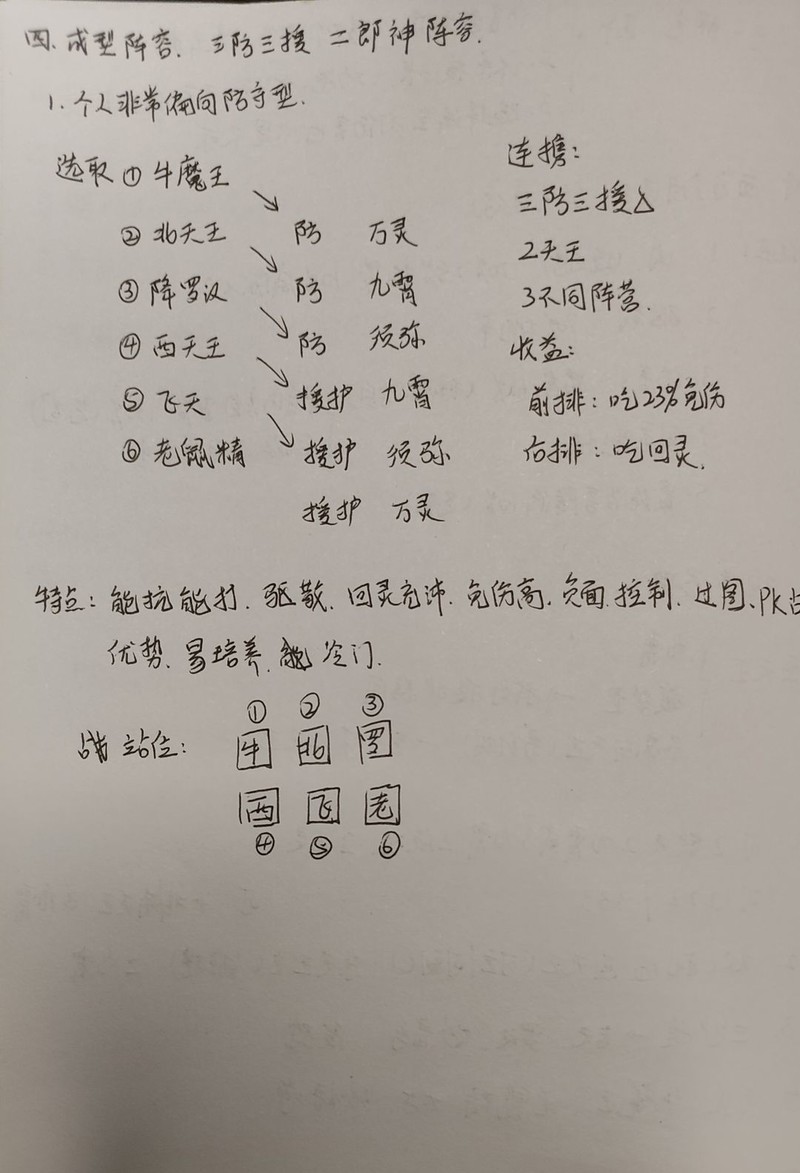 四、成型阵容、三防三援 二郎神阵容.
1.个人非常偏向防守型.
选取 ① 牛魔王
② 北天王 防 万灵
③ 降罗汉 防 九霄
④ 西天王 防 须弥
⑤ 飞天 援护 九霄
⑥ 老鼠精 援护 须弥
援护 万灵
连携:
三防三援
2天王
3不同阵营.
收益:
前排:吃23%免伤
后排:吃回灵.
特点:能抗能打、驱散、回灵充沛、免伤高、负面、控制、过图、PK占
优势、易培养、冷门.
站位:
① ② ③
牛 北 罗
西 飞 老
④ ⑤ ⑥